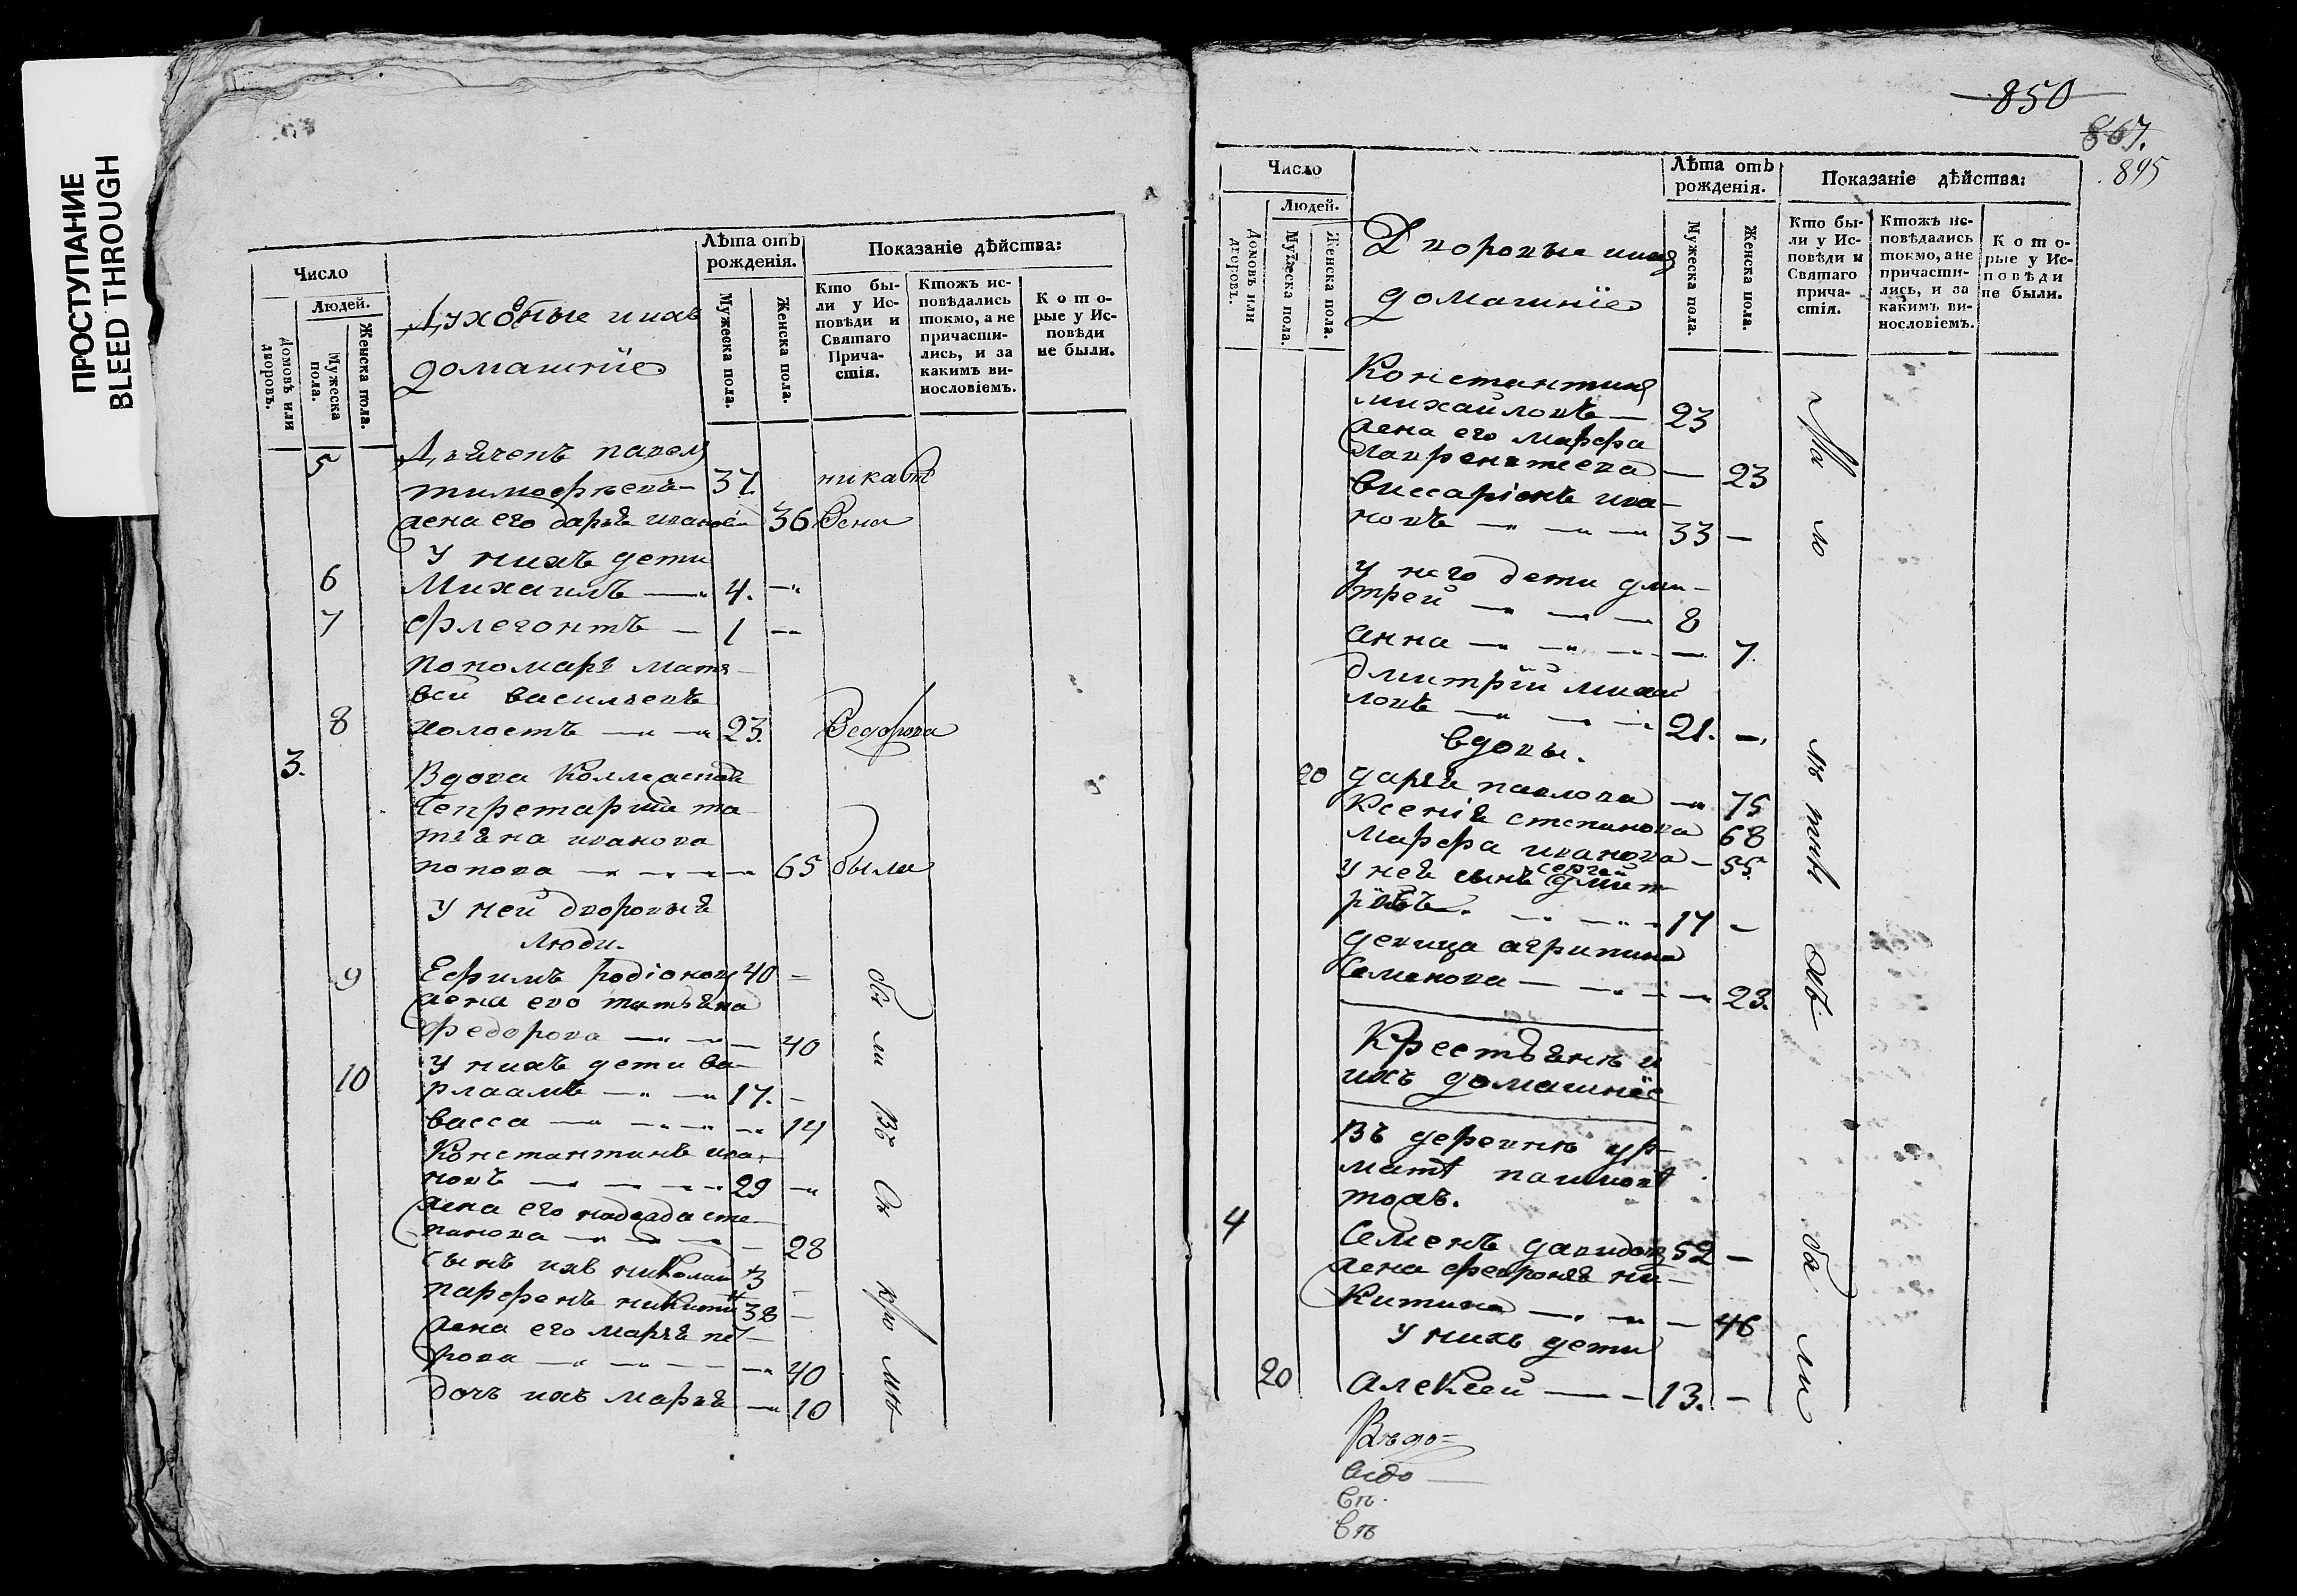 ПРОСТУПАНИЕ
BLEED THROUGH
Число
Людей.
Домовъ или дворовъ.
Мужеска пола.
Женска пола.
Духовные и ихъ
домашніе
Лѣта отъ рожденія.
Мужеска пола.
Женска пола.
Показаніе дѣйства:
Кто бы-
ли у Ис-
повѣди и
Святаго
Прича-
стія.
Ктожъ ис-
повѣдались
токмо, а не
причасти-
лись, и за
какимъ ви-
нословіемъ.
К о т о-
рые у Ис-
повѣди
не были.
5 Дьячекъ павел
тимофеевъ 37.
жена его дарья иванова 36
У нихъ дети
6 Михаилъ 4.
7 Флегонтъ 1
пономарь мать-
вей васильевъ
8 холостъ 23.
3. Вдова Коллежская
Секретарша та
тьяна иванова
попова 65 были
У ней дворовыя
люди.
9 Ефимъ родіонов 40
жена его татьяна
федорова 40
У нихъ дети ва-
10 рлаамъ 17.
васса 14
Константинъ ива-
новъ 29
жена его надежда сте-
панова 28
сынъ ихъ николай 3
парфенъ никитин 38
жена его марья пет-
рова 40
дочь ихъ марья 10
850
867.
895
Число
Людей.
Домовъ или дворовъ.
Мужеска пола.
Женска пола.
Дворовые и ихъ
домашніе
Лѣта отъ
рожденія.
Мужеска пола.
Женска пола.
Показаніе дѣйства:
Кто бы-
ли у Ис-
повѣди и
Святаго
прича-
стія.
Ктожъ ис-
повѣдались
токмо, а не
причасти-
лись, и за
какимъ ви-
нословіемъ.
К о т о-
рые у Ис-
п о в ѣ д и
не были.
Константин
михайловъ 23
жена его марфа
лаврентьева 23
виссаріонъ ива-
новъ 33
у него дети дми-
трей 8
анна 7.
дмитрій михай
ловъ 21.
вдовы.
20 дарья павлова 75
Ксенія степанова 68
Марфа иванова 55.
у нея сынъ сергей
17
девица агрипина
Семенова 23.
Крестьяне и
ихъ домашніе
Въ деревне ур-
мате
4 Семенъ давидов 52
жена феvронья ни-
Китина 46
У нихъ дети
20 алексей 13.